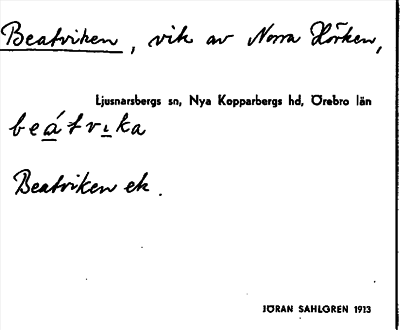 Beatviken, vik av Norra Hörken,
Ljusnarsbergs sn, Nya Kopparbergs hd, Örebro län
beátvıka
Beatviken ek.
JÖRAN SAHLGREN 1913